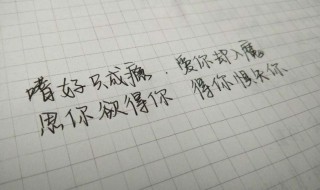 嗜好只成瘾，爱你却入魔
思你欲得你 得你惧失你